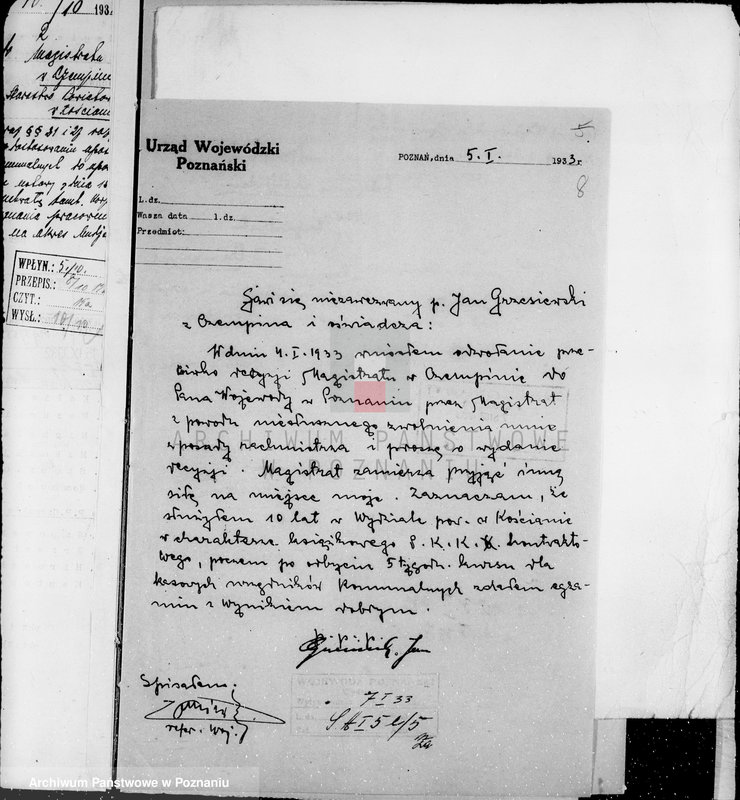 10/10 193
2
Magistratu
w Czempiniu
w Kościanie
WPŁYN.: 5/10.
PRZEPIS.:
CZYT.:
WYSŁ.: 10/10
5
Urząd Wojewódzki
Poznański
POZNAŃ, dnia 5.I. 1933 r.
8
L.dz.
Wasza data l.dz.
Przedmiot:
Jawi się niezawezwany p. Jan Grzesiewski
z Czempina i oświadcza:
W dniu 4.I.1933 wniosłem odwołanie prze-
ciwko decyzji Magistratu w Czempiniu do
Pana Wojewody w Poznaniu przez Magistrat
z powodu niesłusznego zwolnienia mnie
z posady rachmistrza i proszę o wydanie
decyzji. Magistrat zamierza przyjąć inną
siłę na miejsce moje. Zaznaczam, że
służyłem 10 lat w Wydziale pow. w Kościanie
w charakterze książkowego P.K.K. kontrakto-
wego, poczem po odbyciu 5 tygodn. kursu dla
kasowych urzędników komunalnych zdałem egza-
min z wynikiem dobrym.
Jan
Spisałem:
refer. woj.
7 I 33
5/5
ARCHIWUM PAŃSTWOWE
W POZNANIU
Archiwum Państwowe w Poznaniu